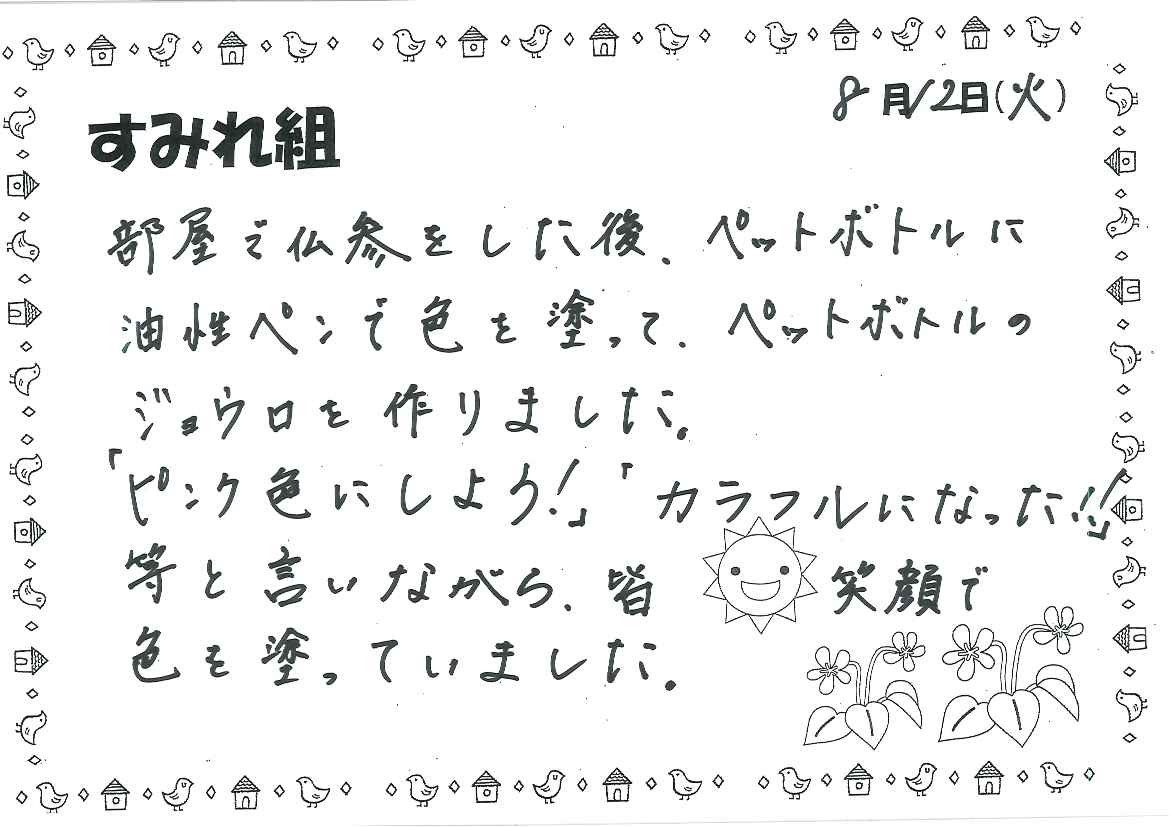 8月12日(火)
すみれ組
部屋で仏参をした後、ペットボトルに
油性ペンで色を塗って、ペットボトルの
ジョウロを作りました。
「ピンク色にしよう!」「カラフルになった!!」
等と言いながら、皆 笑顔で
色を塗っていました。